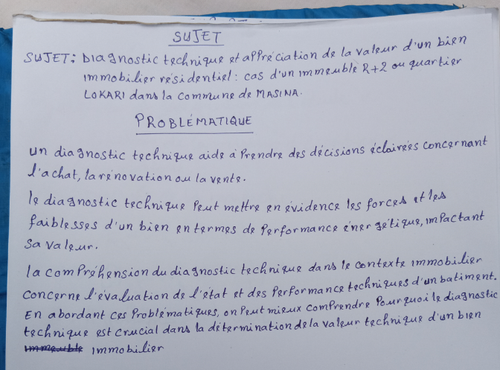 SUJET
SUJET: Diagnostic technique et appréciation de la valeur d'un bien
immobilier résidentiel: cas d'un immeuble R+2 au quartier
LOKARI dans la commune de MASINA.
PROBLÉMATIQUE
un diagnostic technique aide à prendre des décisions éclairées concernant
l'achat, la rénovation ou la vente.
le diagnostic technique peut mettre en évidence les forces et les
faiblesses d'un bien en termes de performance énergétique, impactant
sa valeur.
la compréhension du diagnostic technique dans le contexte immobilier
concerne l'évaluation de l'état et des performance techniques d'un batiment.
En abordant ces problématiques, on peut mieux comprendre pourquoi le diagnostic
technique est crucial dans la détermination de la valeur technique d'un bien
immeuble immobilier